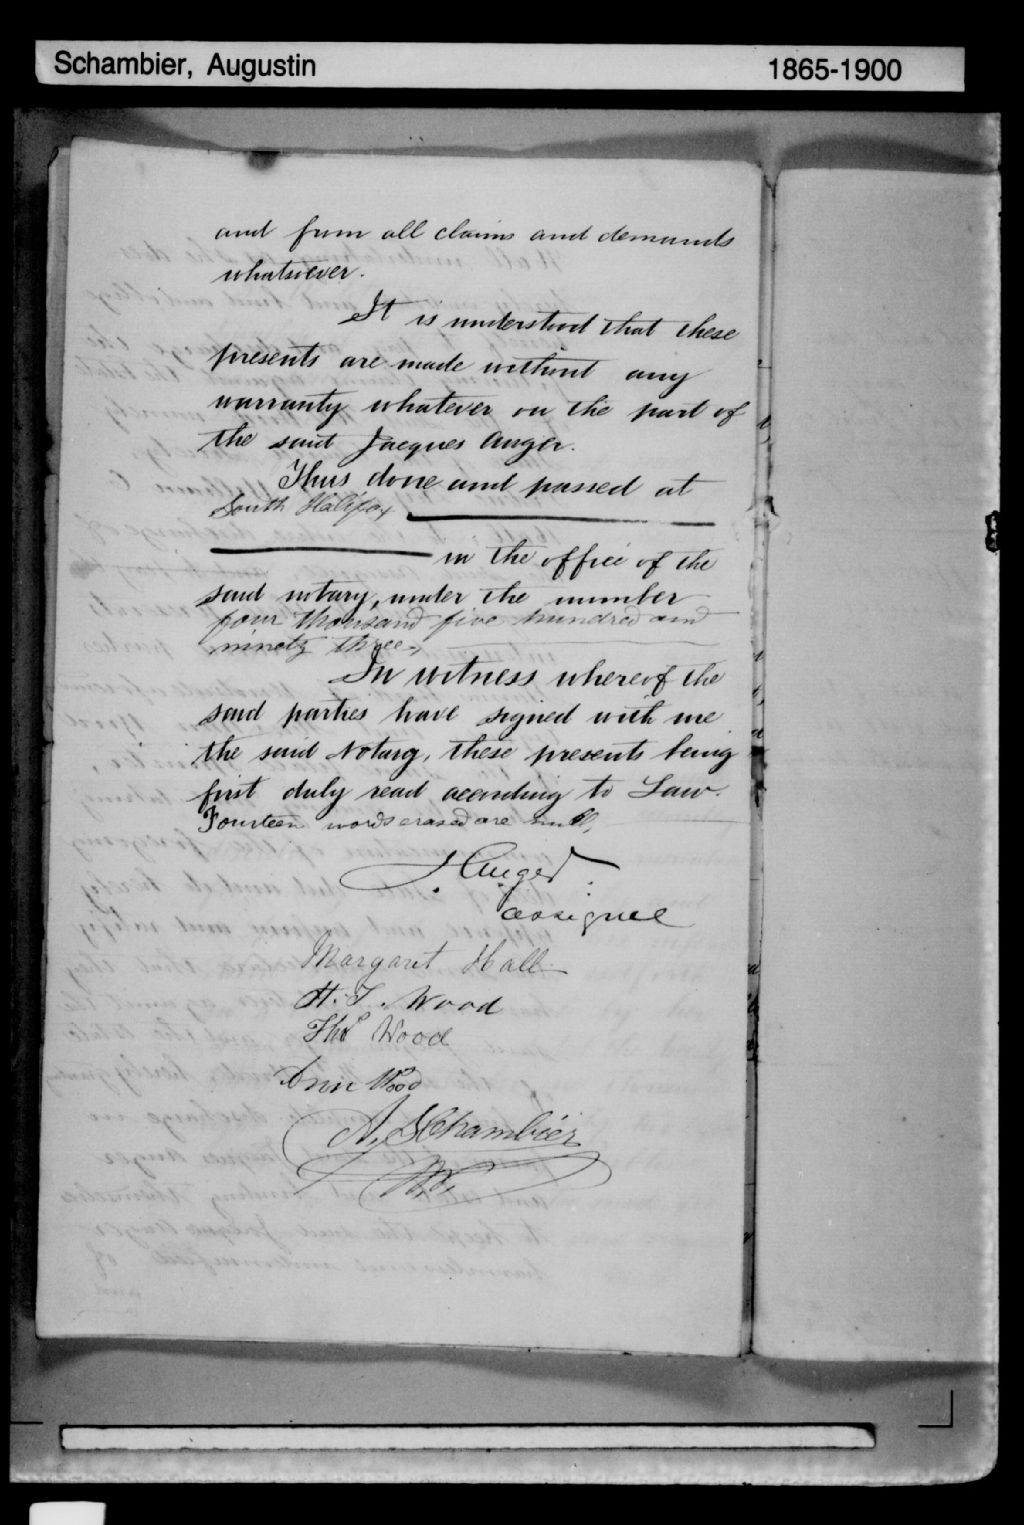 Schambier, Augustin 1865-1900
and from all claims and demands
whatsoever.
It is understood that these
presents are made without any
warranty whatever on the part of
the said Jacques Auger.
Thus done and passed at
South Halifax
in the office of the
said notary, under the number
four thousand five hundred and
ninety three,
In witness whereof the
said parties have signed with me
the said Notary, these presents being
first duly read according to Law.
Fourteen words erased are null,
J Auger
assignee
Margaret Hall
H. T. Wood
Thos Wood
Annie Wood
A. Schambier
N.P.